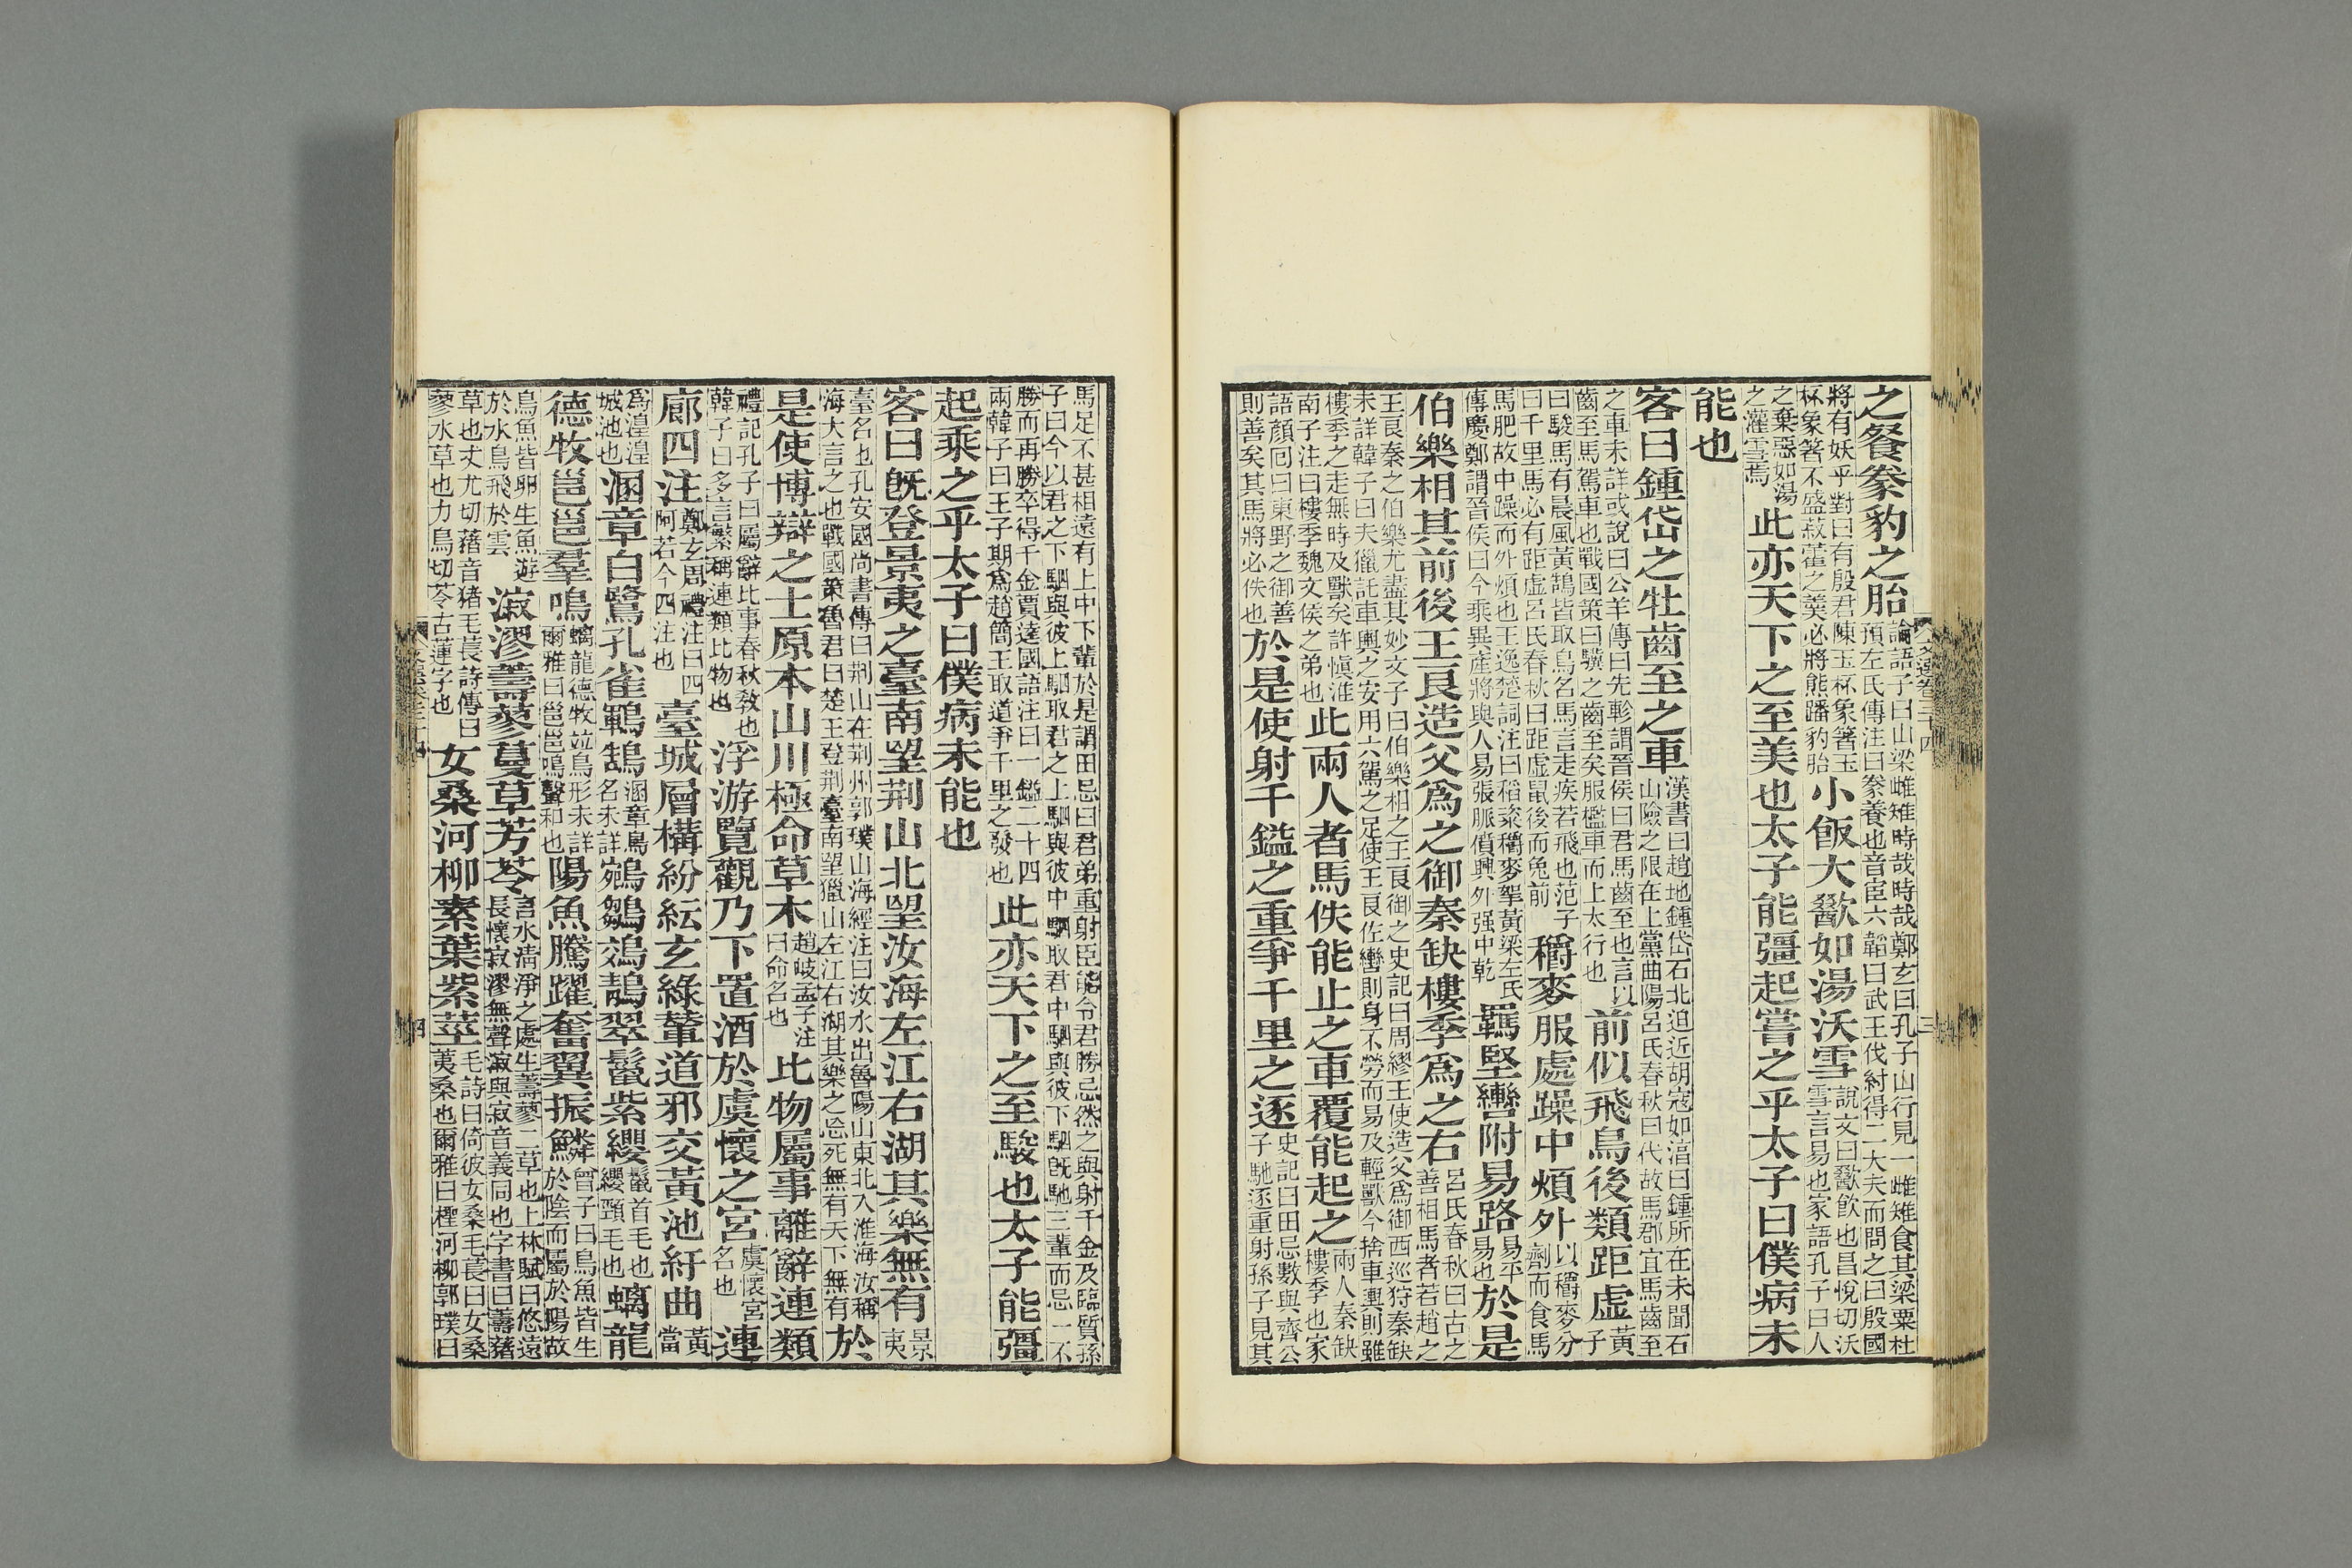 之餐豢豹之胎論語子曰山梁雌雉時哉時哉鄭玄曰孔子山行見一雌雉食其梁粟杜預左氏傳注曰豢養也音宦六韜曰武王伐紂得二大夫而問之曰殷國
將有妖乎對曰有殷君陳玉杯象箸玉杯象箸不盛菽藿之羹必將熊蹯豹胎小飯大歠如湯沃雪說文曰歠飲也昌悅切沃雪言易也家語孔子曰人
之棄惡如湯之灌雪焉此亦天下之至美也太子能彊起嘗之乎太子曰僕病未
能也
客曰鍾岱之牡齒至之車漢書曰趙地鍾岱石北迫近胡寇如湻曰鍾所在未聞石山險之限在上黨曲陽呂氏春秋曰代故馬郡宜馬齒至
之車未詳或說曰公羊傳曰先軫謂晉侯曰君馬齒至也言以齒至馬駕車也戰國策曰驥之齒至矣服檻車而上太行也前似飛鳥後類距虛黃子
曰駿馬有晨風黃鵠皆取鳥名馬言走疾若飛也范子曰千里馬必有距虛呂氏春秋曰距虛鼠後而兔前穱麥服處躁中煩外以穱麥分劑而食馬
馬肥故中躁而外煩也王逸楚詞注曰稻粢穱麥挐黃梁左氏傳慶鄭謂晉侯曰今乘異產將與人易張脈僨興外强中乾羈堅轡附易路易平易也於是
伯樂相其前後王良造父爲之御秦缺樓季爲之右呂氏春秋曰古之善相馬者若趙之
王良秦之伯樂尤盡其妙文子曰伯樂相之王良御之史記曰周繆王使造父爲御西巡狩秦缺未詳韓子曰夫獵託車輿之安用六駕之足使王良佐轡則身不勞而易及輕獸今捨車輿則雖
樓季之走無時及獸矣許愼淮南子注曰樓季魏文侯之弟也此兩人者馬佚能止之車覆能起之兩人秦缺樓季也家
語顏囘曰東野之御善則善矣其馬將必佚也於是使射千鎰之重爭千里之逐史記曰田忌數與齊公子馳逐重射孫子見其
馬足不甚相遠有上中下輩於是謂田忌曰君弟重射臣能令君勝忌然之與射千金及臨質孫子曰今以君之下駟與彼上駟取君之上駟與彼中駟取君中駟與彼下駟旣馳三輩而忌一不
勝而再勝卒得千金賈逵國語注曰一鎰二十四兩韓子曰王子期爲趙簡主取道爭千里之發也此亦天下之至駿也太子能彊
起乘之乎太子曰僕病未能也
客曰旣登景夷之臺南望荆山北望汝海左江右湖其樂無有景夷
臺名也孔安國尚書傳曰荆山在荆州郭璞山海經注曰汝水出魯陽山東北入淮海汝稱海大言之也戰國策魯君曰楚王登荆臺南望獵山左江右湖其樂之忘死無有天下無有於
是使博辯之士原本山川極命草木趙岐孟子注曰命名也比物屬事離辭連類
禮記孔子曰屬辭比事春秋敎也韓子曰多言繁稱連類比物也浮游覽觀乃下置酒於虞懷之宮虞懷宮名也連
廊四注鄭玄周禮注曰四阿若今四注也臺城層構紛紜玄綠輦道邪交黃池紆曲黃當
爲湟湟城池也溷章白鷺孔雀鶤鵠溷章鳥名未詳鵷鶵鵁鶄翠鬣紫纓鬣首毛也纓頸毛也螭龍
德牧邕邕羣鳴螭龍德牧竝鳥形未詳爾雅曰邕邕鳴聲和也陽魚騰躍奮翼振鱗曾子曰鳥魚皆生於陰而屬於陽故
鳥魚皆卵生魚遊於水鳥飛於雲漃漻薵蓼蔓草芳苓言水淸淨之處生薵蓼二草也上林賦曰悠遠長懷寂漻無聲漃與寂音義同也字書曰薵藸
草也丈尤切藸音豬毛萇詩傳曰蓼水草也力鳥切苓古蓮字也女桑河柳素葉紫莖毛詩曰倚彼女桑毛萇曰女桑荑桑也爾雅曰檉河柳郭璞曰